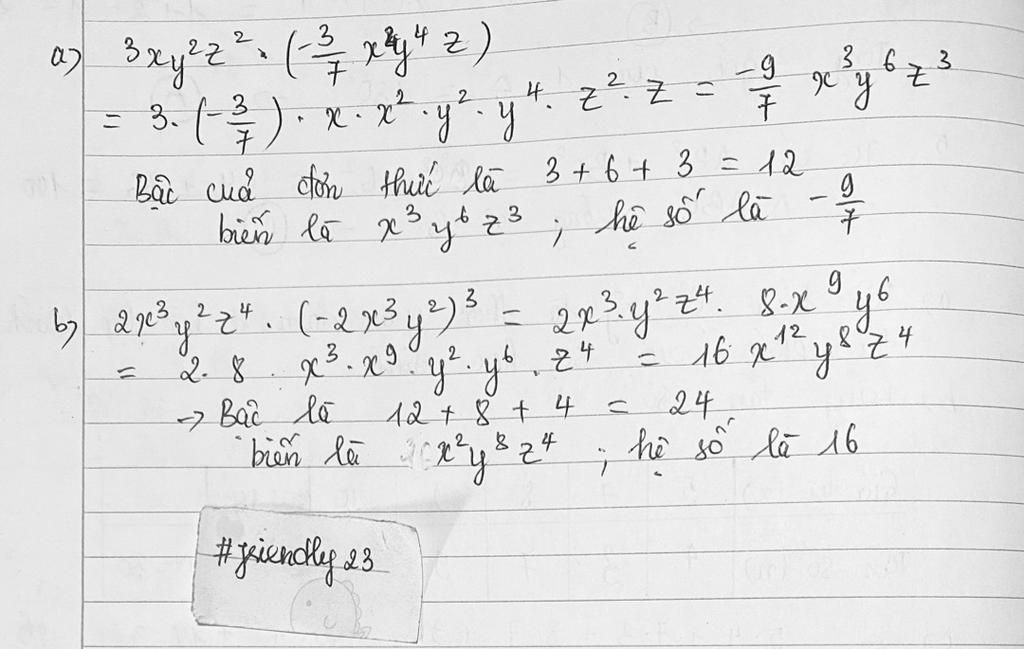 a) 3xy²z² · (-3/7 x²y⁴ z)
= 3 · (-3/7) · x · x² · y² · y⁴ · z² · z = -9/7 x³y⁶z³
Bậc cuả đơn thức là 3 + 6 + 3 = 12
biến là x³y⁶z³ ; hệ số là -9/7
b) 2x³y²z⁴ · (-2x³y²)³ = 2x³·y²z⁴. 8·x⁹y⁶
= 2· 8 · x³ · x⁹ · y² · y⁶ · z⁴ = 16 x¹²y⁸z⁴
→ Bậc là 12 + 8 + 4 = 24
biến là x²y⁸z⁴ ; hệ số là 16
#friendly23